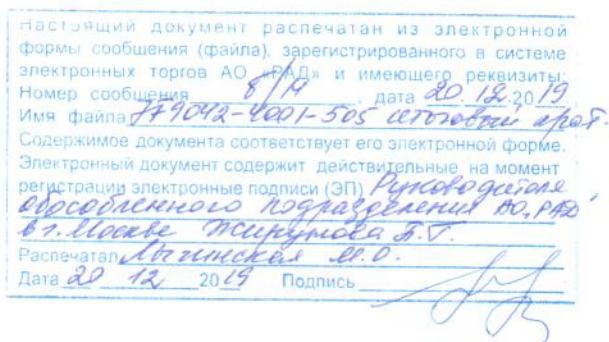 Настоящий документ распечатан из электронной
формы сообщения (файла), зарегистрированного в системе
электронных торгов АО «РАД» и имеющего реквизиты:
Номер сообщения б/н, дата 20.12.2019
Имя файла 779042-4001-505 итоговый прот.
Содержимое документа соответствует его электронной форме.
Электронный документ содержит действительные на момент
регистрации электронные подписи (ЭП) Руководителя
обособленного подразделения АО "РАД"
в г. Москве
Распечатал М.О.
Дата 20 12 2019 Подпись